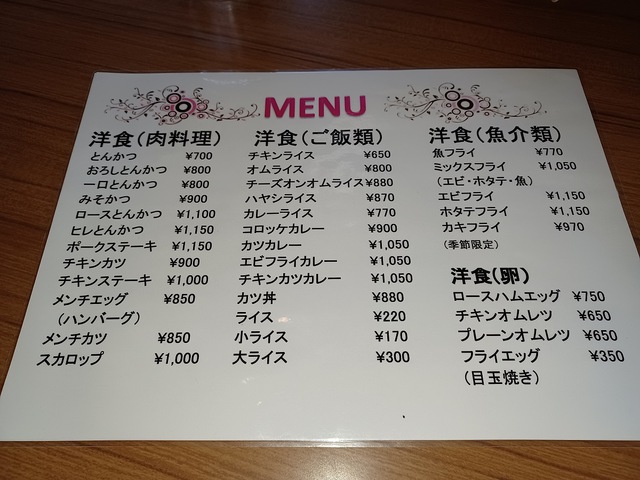 MENU
洋食(肉料理)
とんかつ ¥700
おろしとんかつ ¥800
一口とんかつ ¥800
みそかつ ¥900
ロースとんかつ ¥1,100
ヒレとんかつ ¥1,150
ポークステーキ ¥1,150
チキンカツ ¥900
チキンステーキ ¥1,000
メンチエッグ ¥850
(ハンバーグ)
メンチカツ ¥850
スカロップ ¥1,000
洋食(ご飯類)
チキンライス ¥650
オムライス ¥800
チーズオンオムライス ¥880
ハヤシライス ¥870
カレーライス ¥770
コロッケカレー ¥900
カツカレー ¥1,050
エビフライカレー ¥1,050
チキンカツカレー ¥1,050
カツ丼 ¥880
ライス ¥220
小ライス ¥170
大ライス ¥300
洋食(魚介類)
魚フライ ¥770
ミックスフライ ¥1,050
(エビ・ホタテ・魚)
エビフライ ¥1,150
ホタテフライ ¥1,150
カキフライ ¥970
(季節限定)
洋食(卵)
ロースハムエッグ ¥750
チキンオムレツ ¥650
プレーンオムレツ ¥650
フライエッグ ¥350
(目玉焼き)